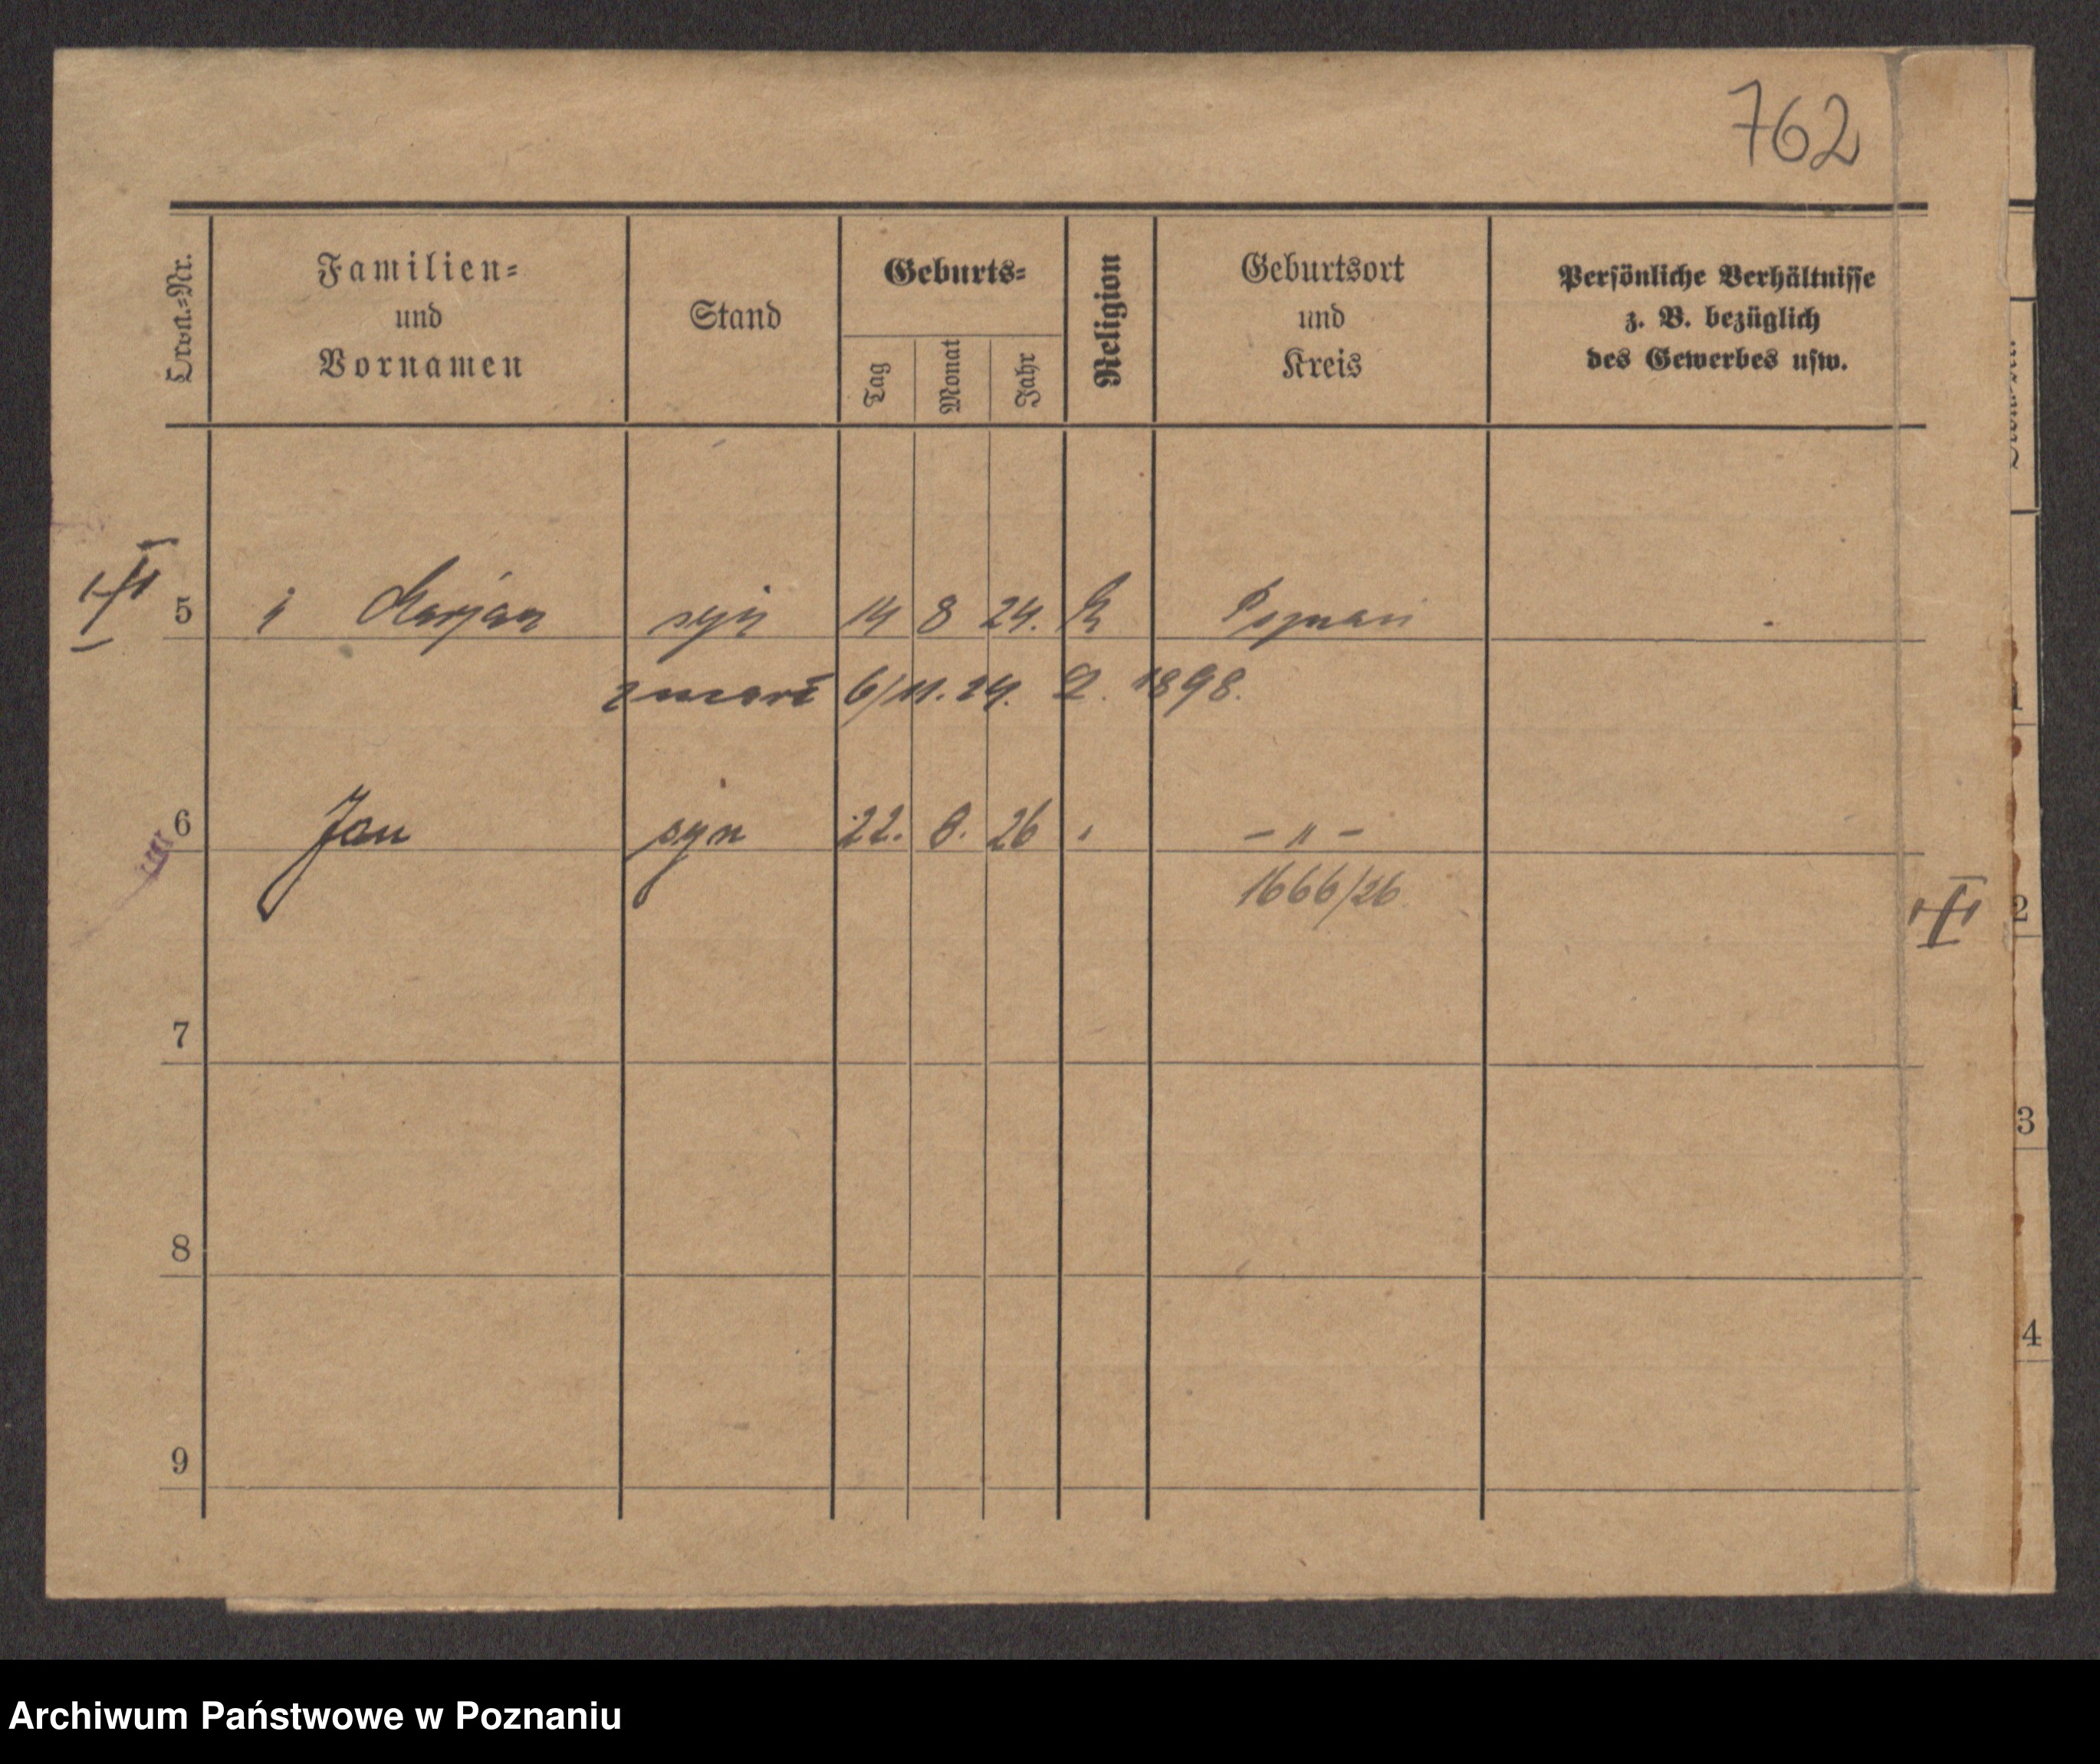 762
Ordn.-Nr.
Familien-
und
Vornamen
Stand
Geburts-
Tag
Monat
Jahr
Religion
Geburtsort
und
Kreis
Persönliche Verhältnisse
z. B. bezüglich
des Gewerbes usw.
5 Marjan syn 14 8 24. K Poznań
zmarł 6/11. 24. 1898.
6 Jan syn 22. 8. 26 " – " –
1666/26
7
8
9
2
3
4
Archiwum Państwowe w Poznaniu